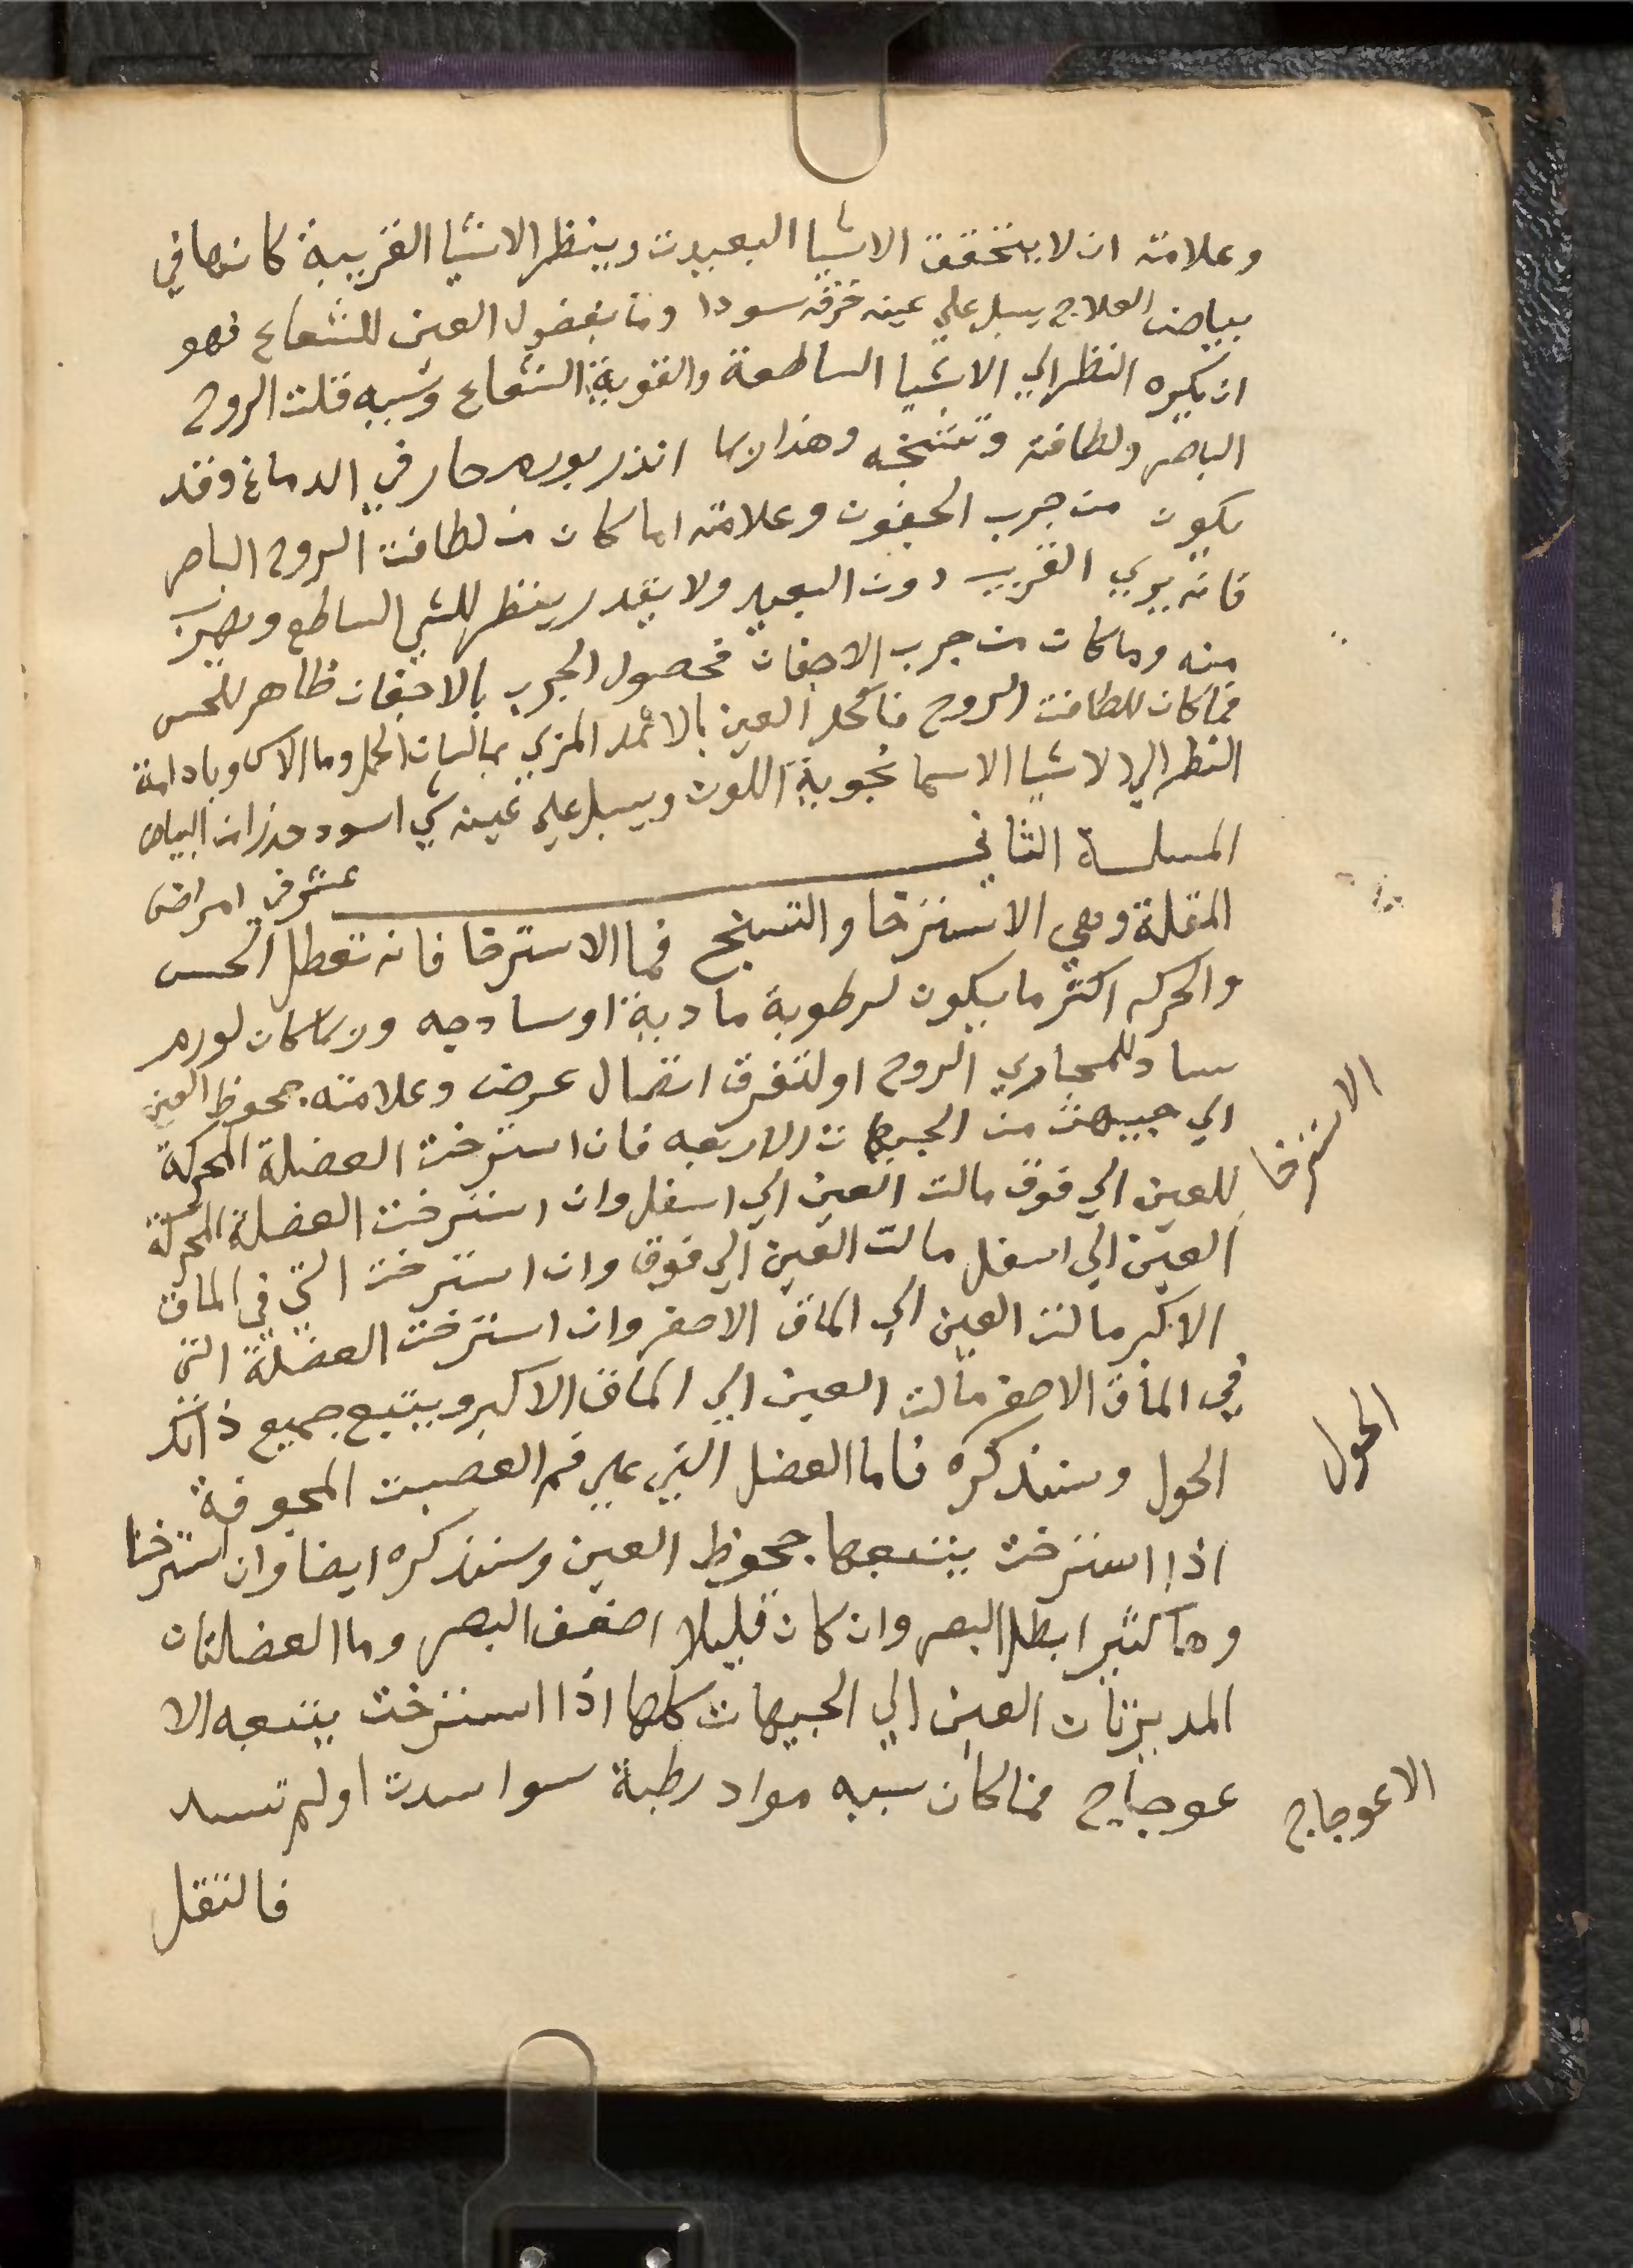 وعلامته ان لا يتحقق الاشيا البعيدت وينظر الاشيا القريبة كانها في
بياض العلاج يسبل علي عينه خرقه سودا وما بغضول العين للشعاع فهو
ان يكره النظر الي الاشيا الساطعة والقوية الشعاع وسببه قلت الروح
الباصر ولطافته وتشنجه وهذا ربما انذر بورم حار في الدماغ وقد
يكون من جرب الجفون وعلامته اما كان من لطافت الروح الباصر
فانه يري القريب دون البعيد ولا يقدر ينظر للشي الساطع ويهرب
منه وما كان من جرب الاجفان فحصول الجرب بالاجفان ظاهر للحس
فما كان للطافت الروح فاكحل العين بالاثمد المربي بمالسان الحمل وما الاس وبادامة
النظر الي الاشيا الاسمانجوية اللون ويسبل علي عينه شي اسود حذرا من البياض
المسلسة الثاني
عشر في امراض
المقلة وهي الاسترخا والتشنج فما الاسترخا فانه تعطل الحس
والحركه اكثر ما يكون لرطوبة مادية او سادجه وربما كان لورم
ساد للمجاري الروح او لتفرق اتصال عرض وعلامته جحوظ العين
الي جيهت من الجيهات الاربعه فان استرخت العضلة المحركة
للعين الي فوق مالت العين الي اسفل وان استرخت العضلة المحركة
العين الي اسفل مالت العين الي فوق وان استرخت التي في الماق
الاكبر مالت العين الي الماق الاصغر وان استرخت العضلة التي
في الماق الاصغر مالت العين الي الماق الاكبر ويتبع جميع ذالك
الحول وسنذكره فاما العضل التي علي فم العصبت المجوفة
اذا استرخت يتبعها جحوظ العين وسنذكره ايضا وان استرخا
وها كثيرا بطل البصر وان كان قليلا اضعف البصر وما العضلتان
المديرتان العين الي الجيهات كلها اذا استرخت يتبعه الا
عوجاج فما كان سببه مواد رطبة سوا سدت او لم تسد
فالثقل
الاسترخا
الحول
الاعوجاج